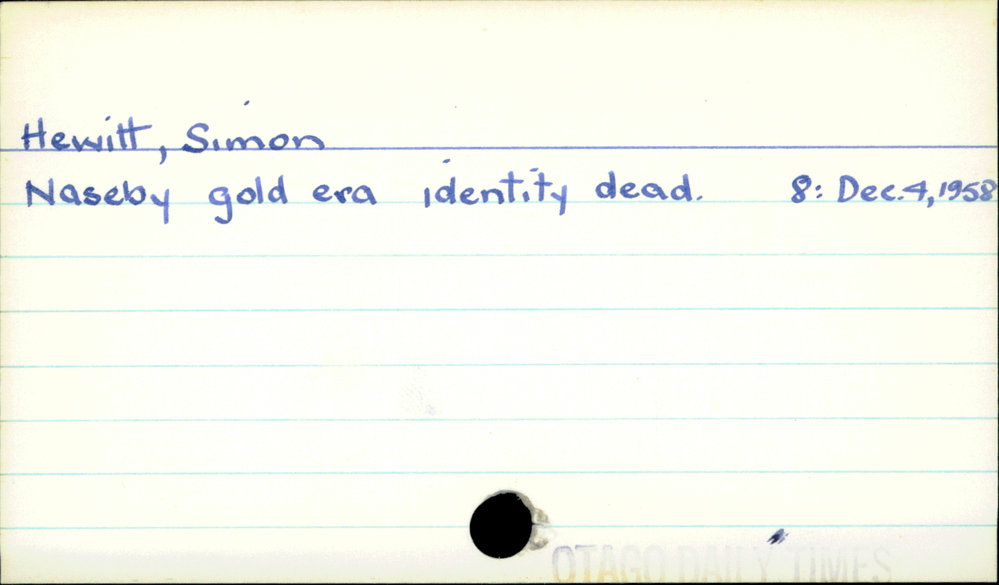 Hewitt, Simon
Naseby gold era identity dead. 8: Dec. 4, 1958
OTAGO DAILY TIMES